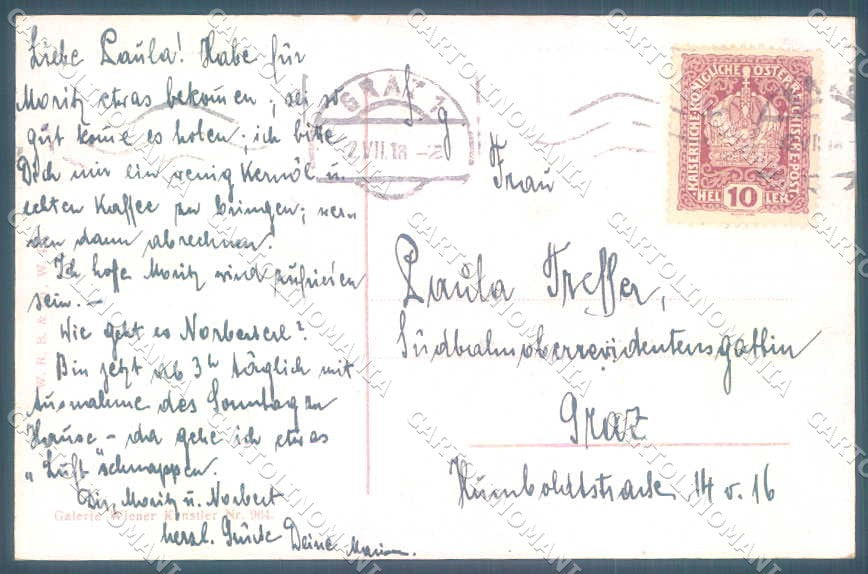 Liebe Paula! Habe für
Moritz etwas bekomen; sei so
gut kome es holen; ich bitte
Dich mir ein wenig Kernöl u.
echten Kaffee zu bringen; wer-
den dann abrechnen.
Ich hoffe Moritz wird zufrieden
sein. –
Wie geht es Norberterl?
Bin jetzt ab 3h täglich mit
Ausnahme des Sonntag zu
Hause – da gehe ich etwas
„Luft" schnappen.
Dir, Moritz u. Norbert
herzl. Grüße Deine
Galerie Wiener Künstler Nr. 964.
GRAZ 1
2.VII.18
Frau
Paula Treffer,
Südbahnoberrevidentensgattin
Graz
Humboldtstrasse 14 o. 16
KAISERLICHE KÖNIGLICHE ÖSTERREICHISCHE POST
HELLER 10
CARTOLINOMANIA